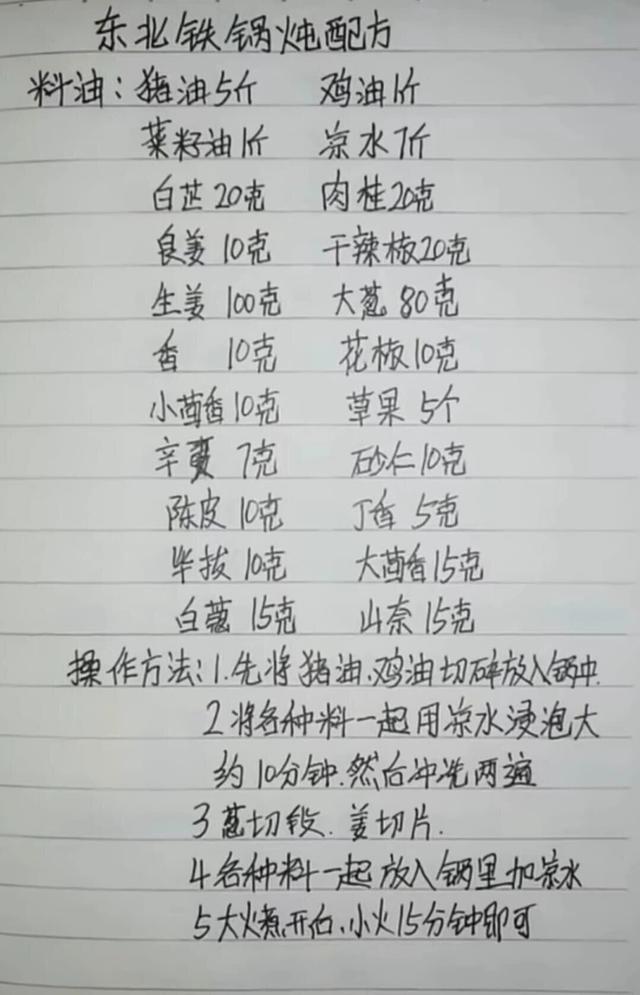 东北铁锅炖配方
料油：猪油5斤 鸡油1斤
菜籽油1斤 凉水7斤
白芷20克 肉桂20克
良姜10克 干辣椒20克
生姜100克 大葱80克
香 10克 花椒10克
小茴香10克 草果5个
辛 7克 砂仁10克
陈皮10克 丁香5克
毕拔10克 大茴香15克
白蔻15克 山奈15克
操作方法：1.先将猪油、鸡油切碎放入锅中.
2将各种料一起用凉水浸泡大
约10分钟.然后冲洗两遍
3葱切段.姜切片.
4各种料一起放入锅里加凉水
5大火煮开后、小火15分钟即可